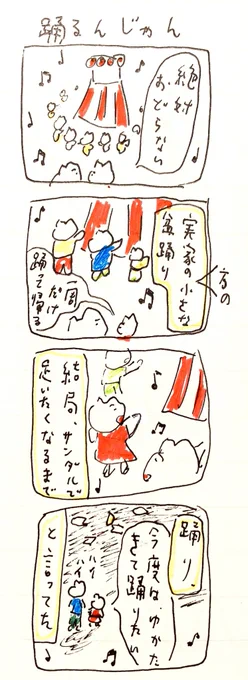 踊るんじゃん
絶対
おどらない
実家の小さな
方の
盆踊り
一周
だけ
踊って帰る
結局、サンダルで
足いたくなるまで
踊り、
今度は、ゆかた
きて踊りたい
ハイ
ハイ
と言ってた